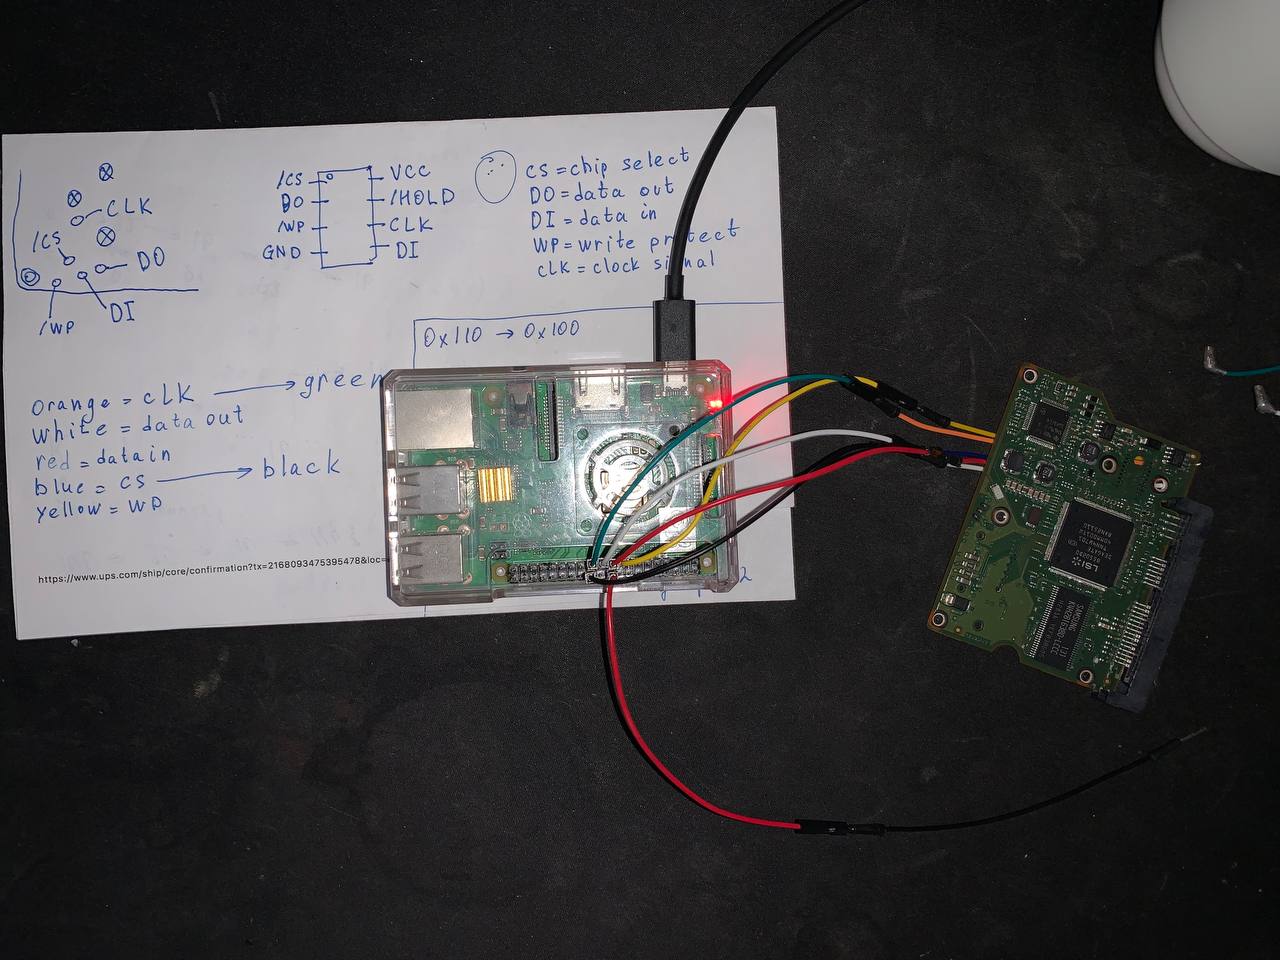 CLK
/CS
DO
DI
/WP
/CS
DO
/WP
GND
VCC
/HOLD
CLK
DI
CS=chip select
DO=data out
DI=data in
WP=write protect
CLK=clock signal
0x110 → 0x100
orange = CLK → green
white = data out
red = datain
blue = CS → black
yellow = WP
https://www.ups.com/ship/core/confirmation?tx=2168093475395478&loc=
2
LSI
SAMSUNG